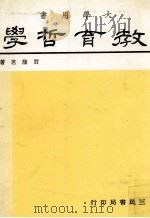 大學用書
教育哲學
賈馥茗著
三民書局印行